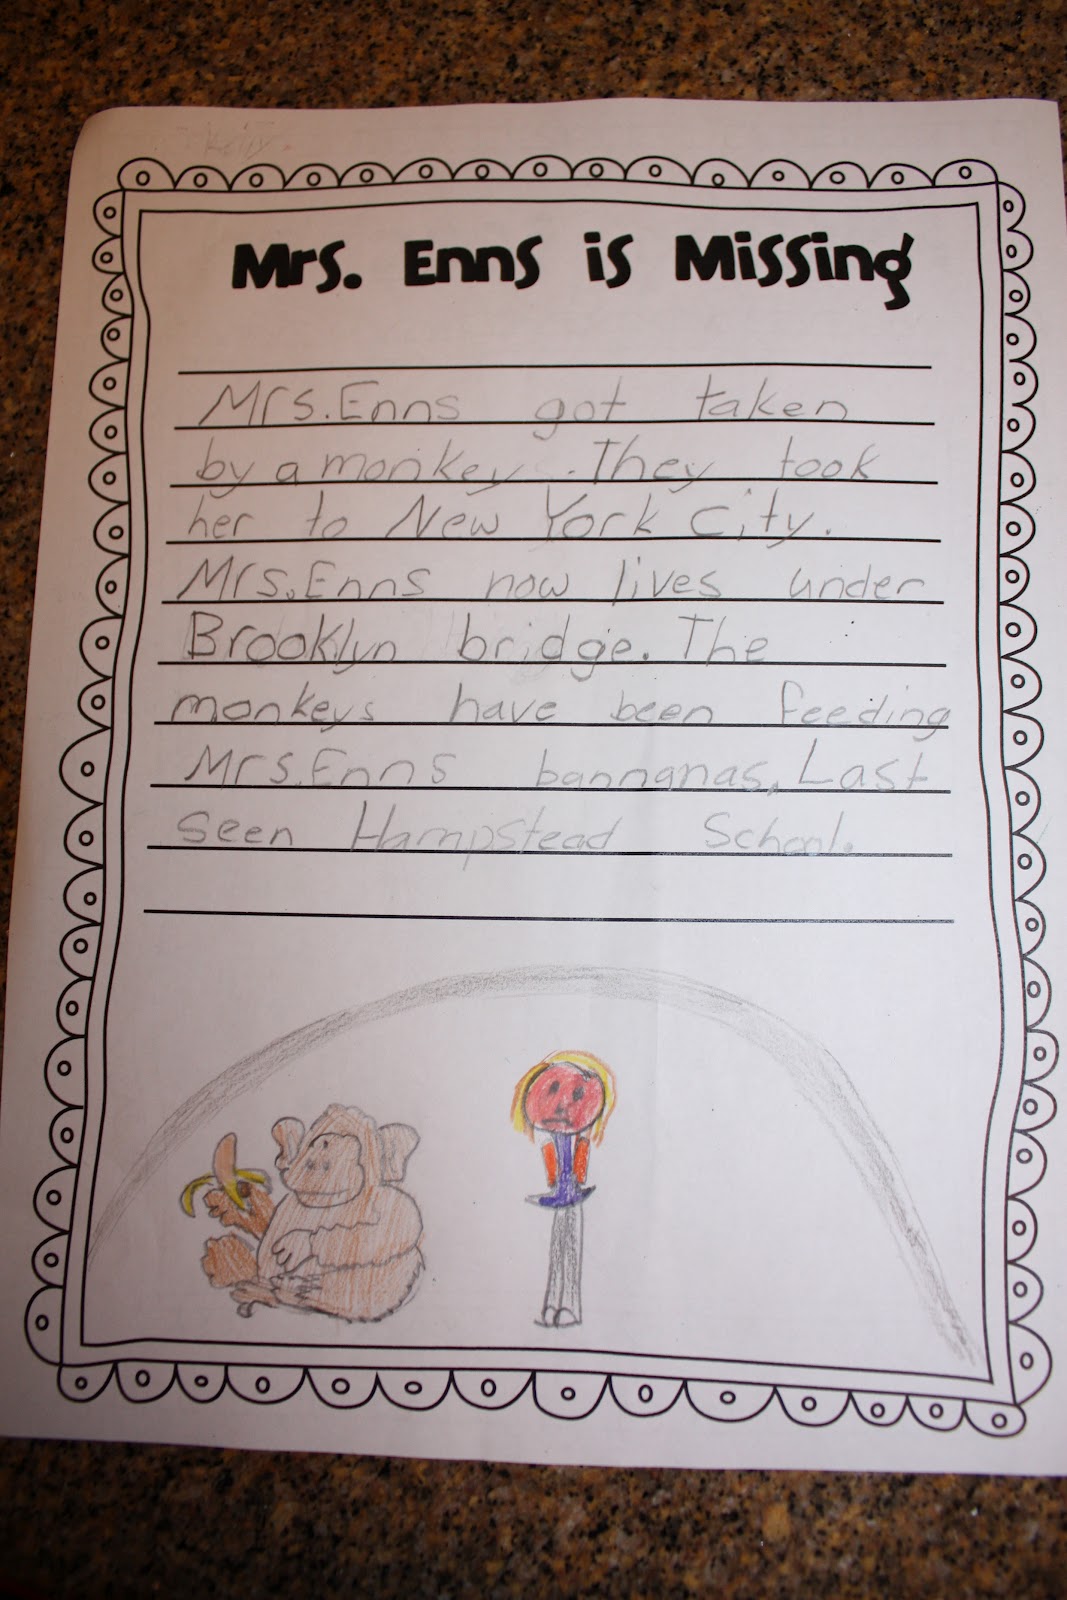 Kelly
Mrs. Enns is Missing
Mrs. Enns got taken
by a monkey. They took
her to New York City.
Mrs. Enns now lives under
Brooklyn bridge. The
monkeys have been feeding
Mrs. Enns bannanas. Last
seen Hampstead School.